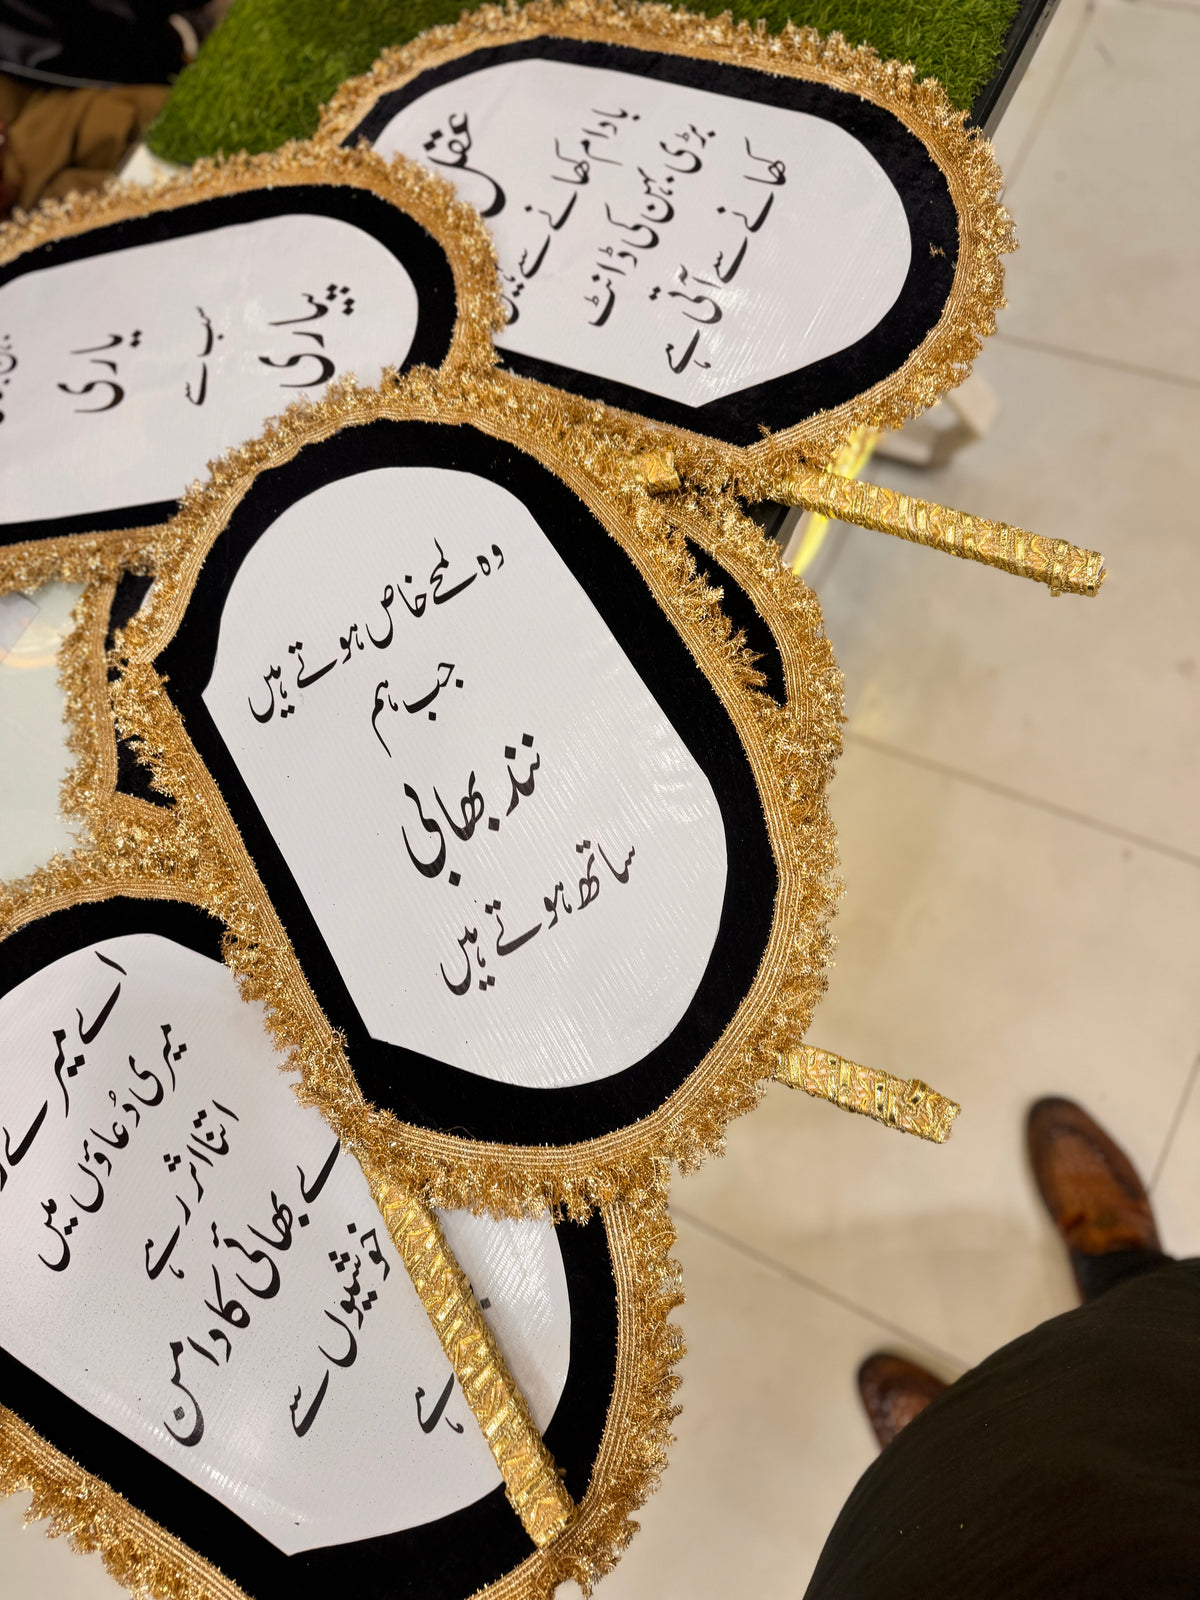 عقل
بادام کھانے سے نہیں
بڑی بہن کی ڈانٹ
کھانے سے آتی ہے
پیاری
سب سے
یاری
وہ لمحے خاص ہوتے ہیں
جب ہم
نند بھابی
ساتھ ہوتے ہیں
اے میرے
میری دُعاؤں میں
اتنا اثر رہے
بھائی کا دامن
خوشیوں سے
ہے